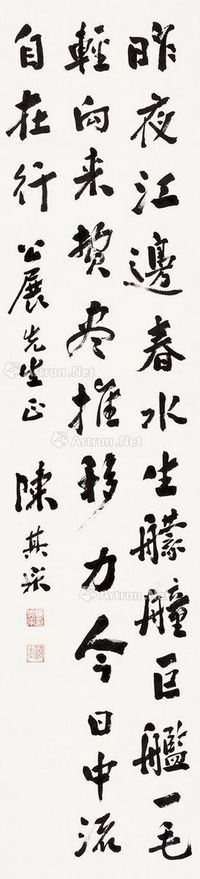 昨夜江邊春水生艨艟巨艦一毛
輕向来費尽推移力今日中流
自在行
公展先生正
陳其采
Artron.Net
Artron.Net
Artron.Net
Artron.Net